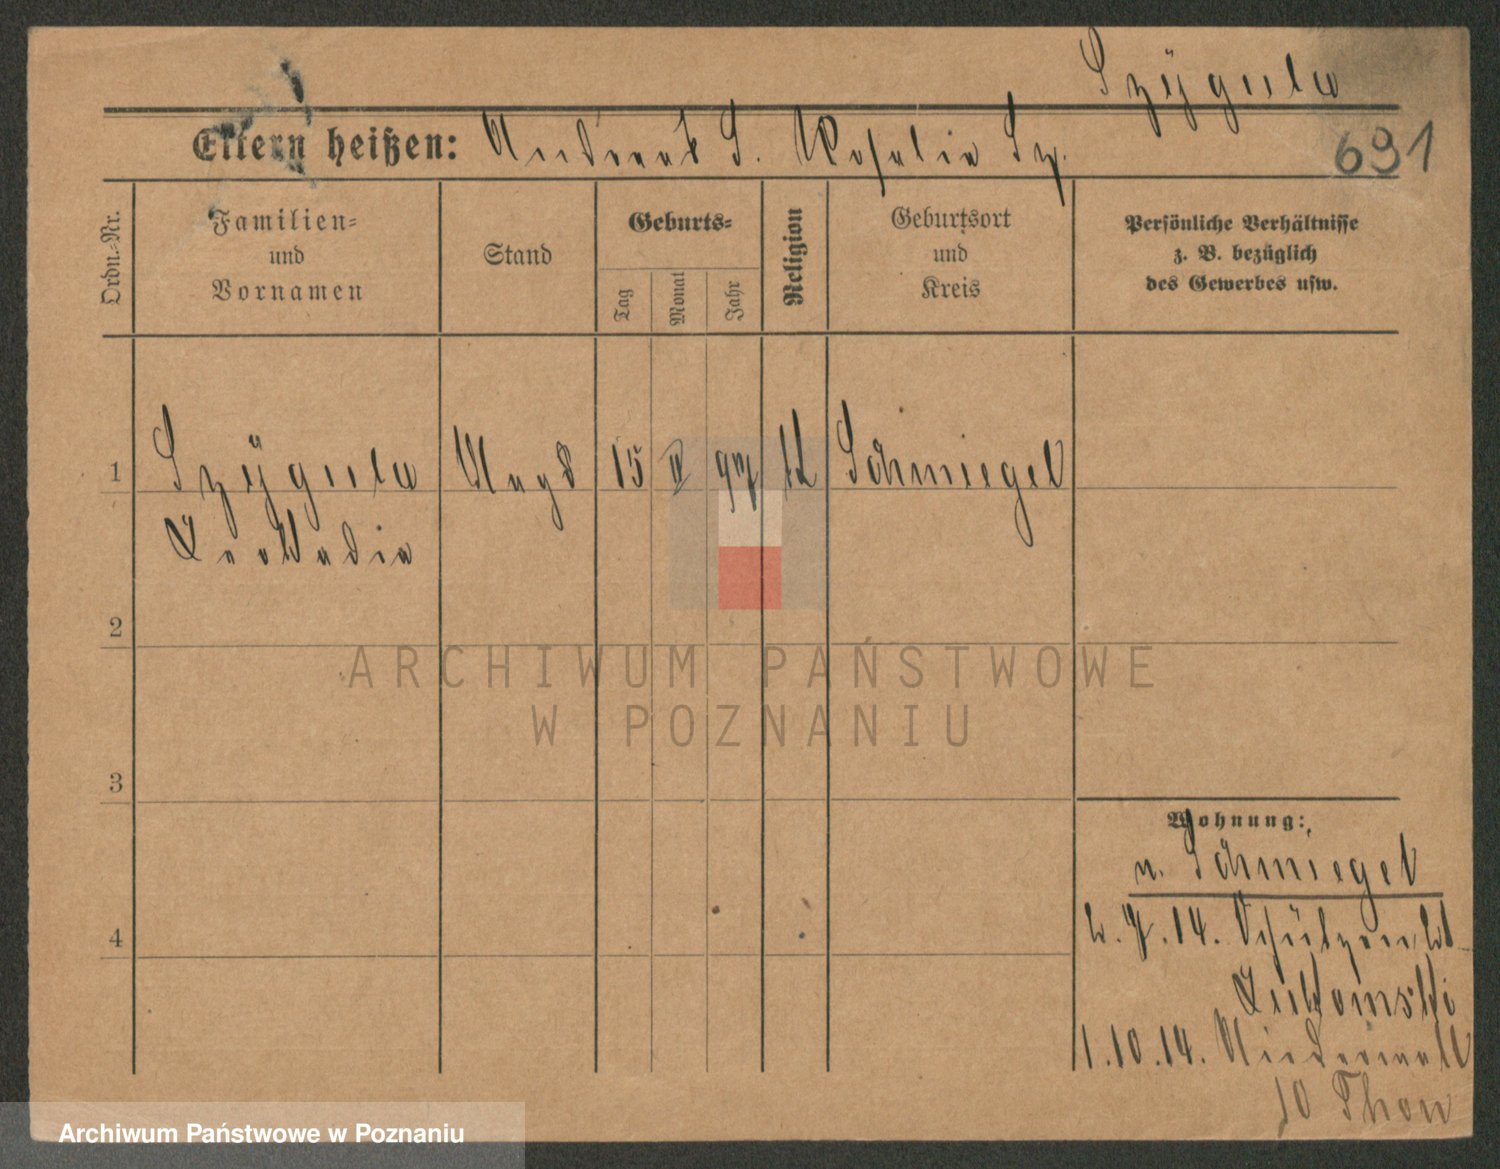 Szÿgula
691
Eltern heißen: Andreas S. Rosalie Sz.
Ordn.-Nr.
Familien-
und
Vornamen
Stand
Geburts-
Tag
Monat
Jahr
Religion
Geburtsort
und
Kreis
Persönliche Verhältnisse
z. B. bezüglich
des Gewerbes usw.
1 Szÿgula Magd 15 Schmiegel
Leokadia
2
3
4
Wohnung:
n. Schmiegel
14. Schützen
Lukomski
1.10.14. Niederwall
10 Thon
ARCHIWUM PAŃSTWOWE
W POZNANIU
Archiwum Państwowe w Poznaniu